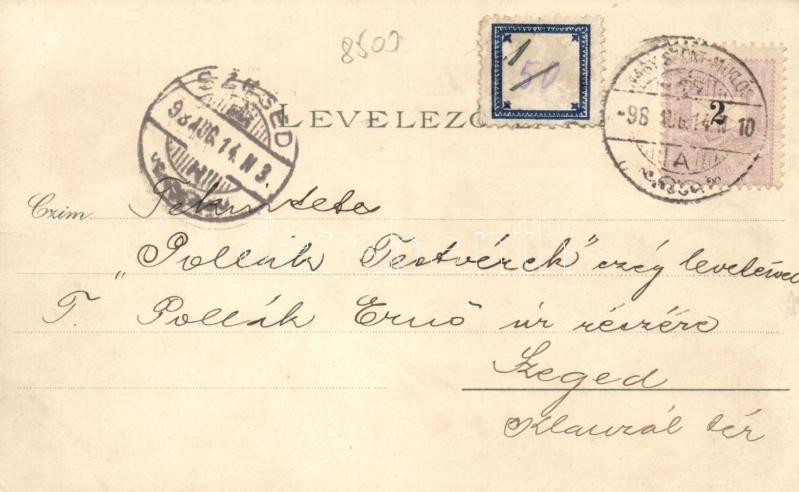 8509
1
50
NAGY SZENT-MIKLÓS
-98 AUG. 14. N 10
A
2
SZEGED
98 AUG. 14. N 3.
LEVELEZŐ
Czim. Tekintetes
„Pollák Testvérek" czég leveleivel
T. Pollák Ernő úr részére
Szeged
Klauzál tér